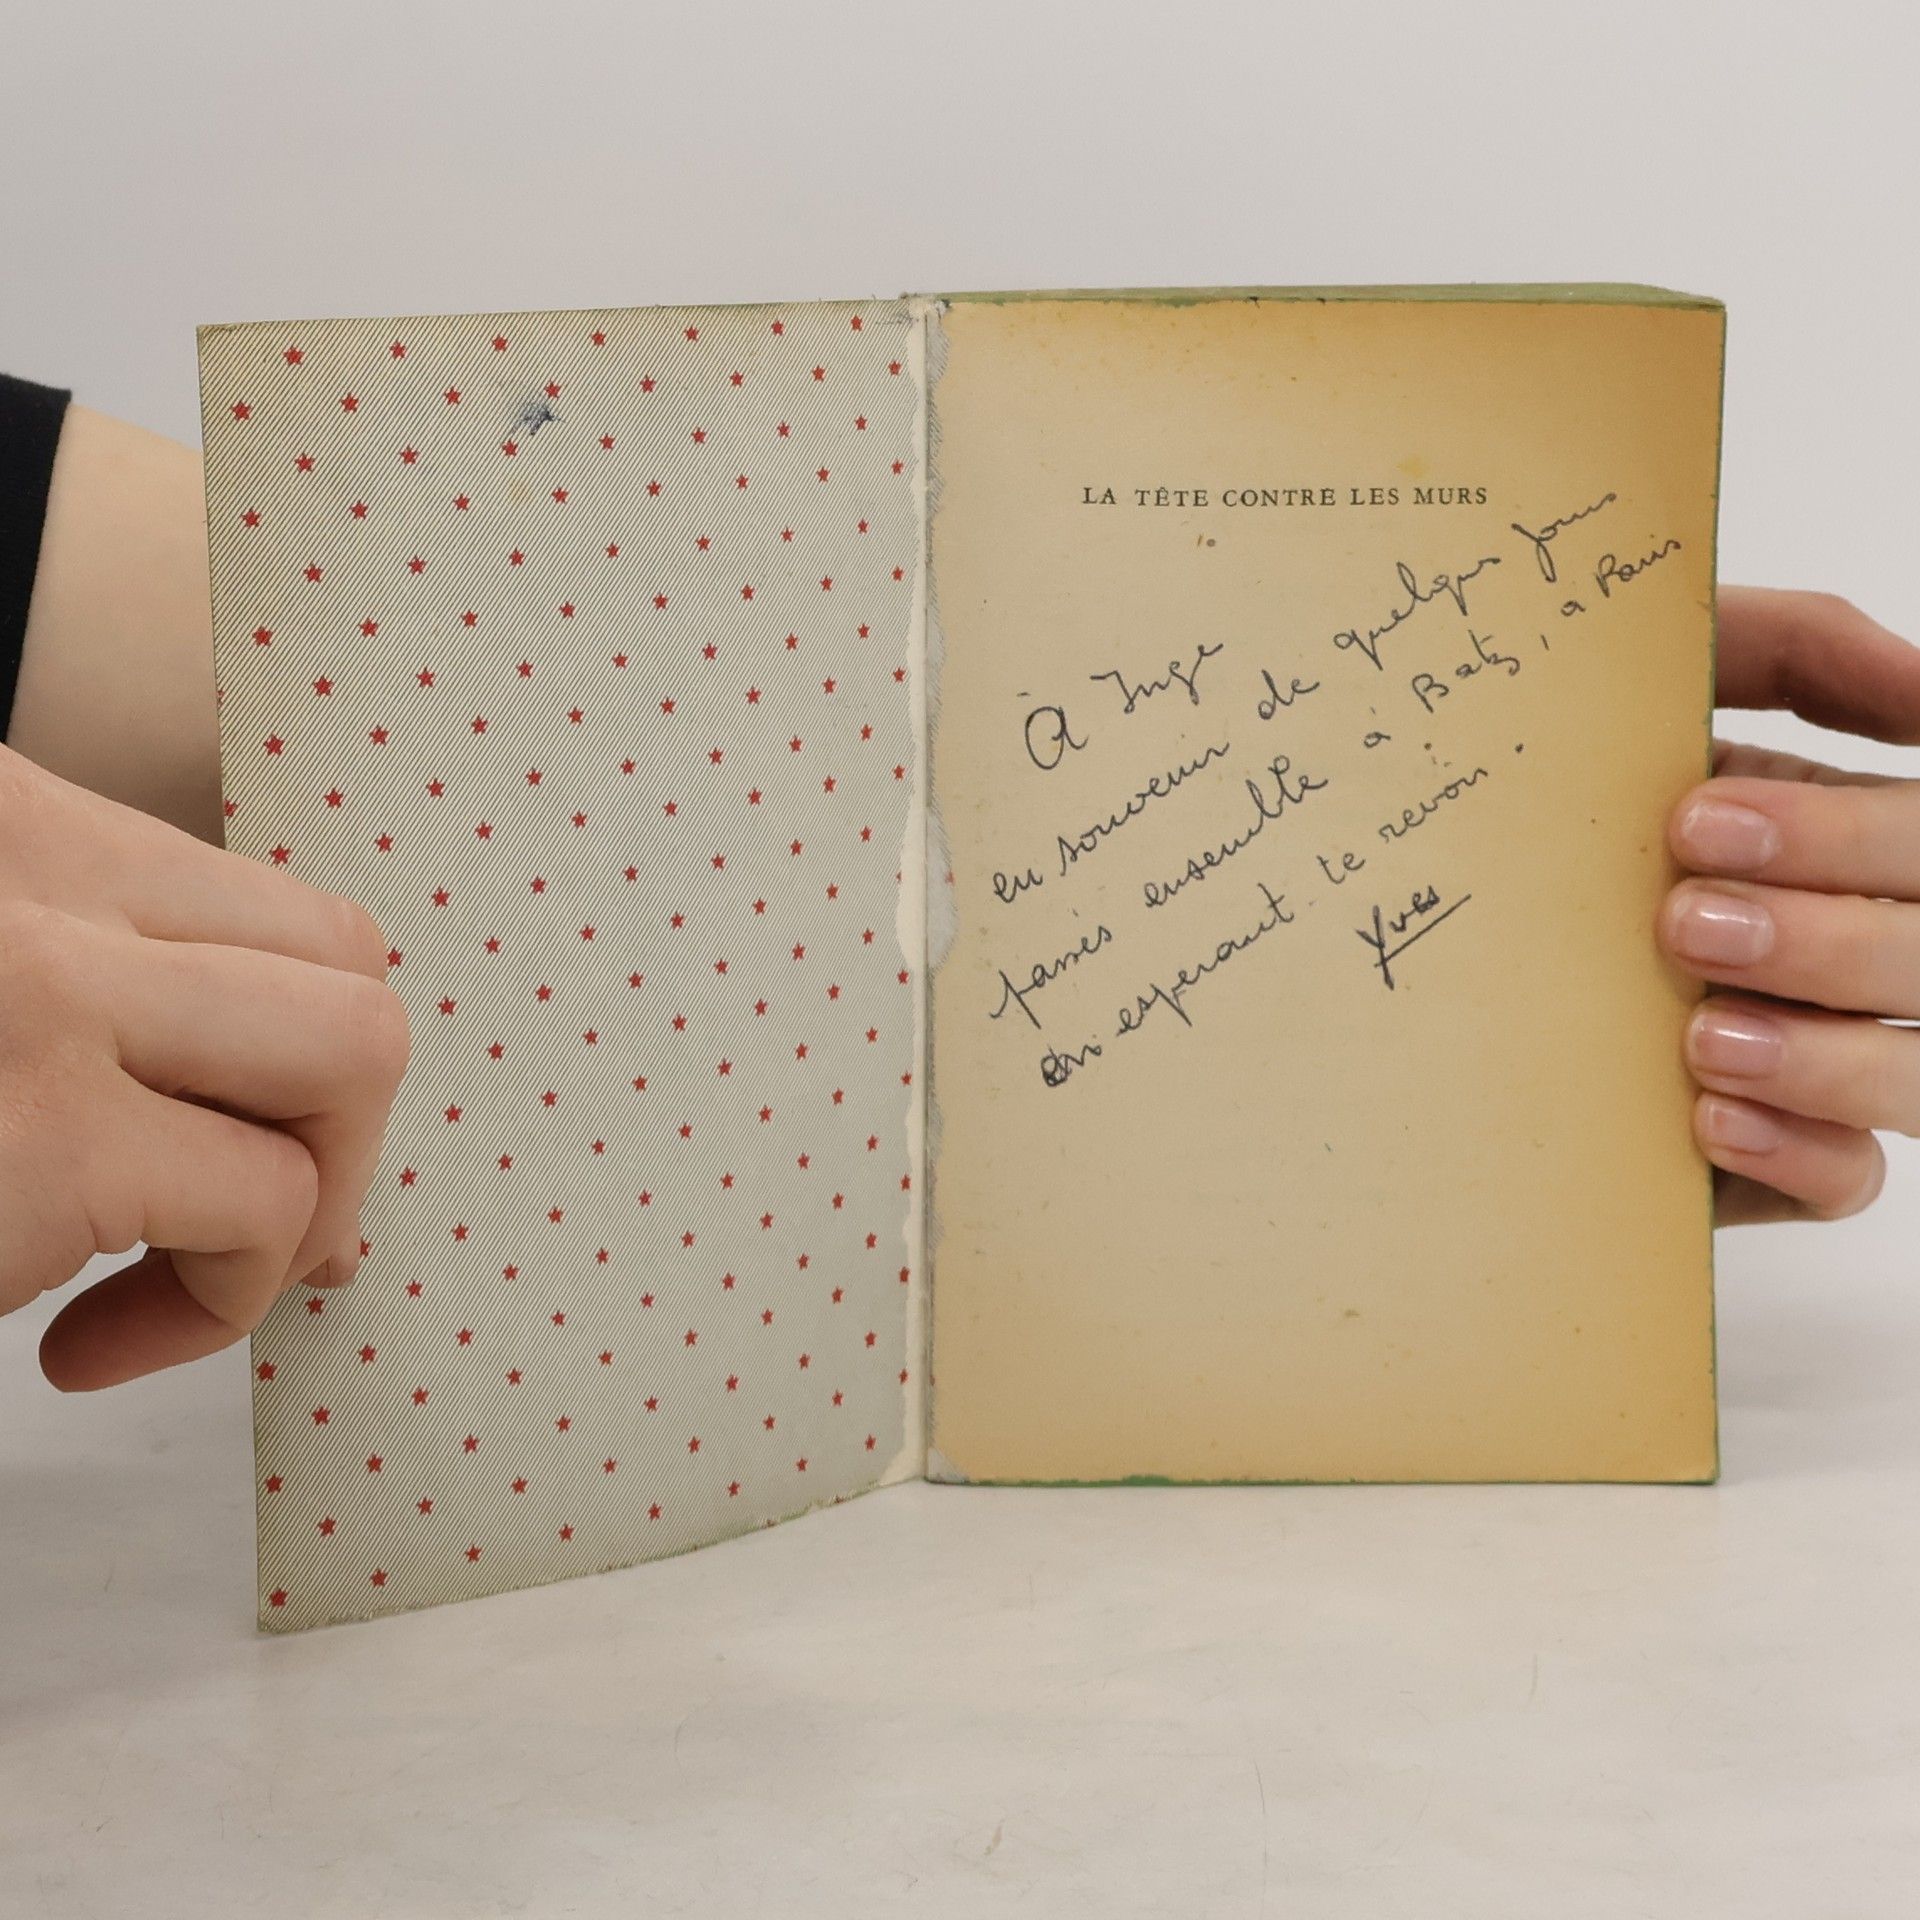 LA TÊTE CONTRE LES MURS
À Inge
en souvenir de quelques jours
passés ensemble à Batz, à Paris
en esperant te revoir.
Yves